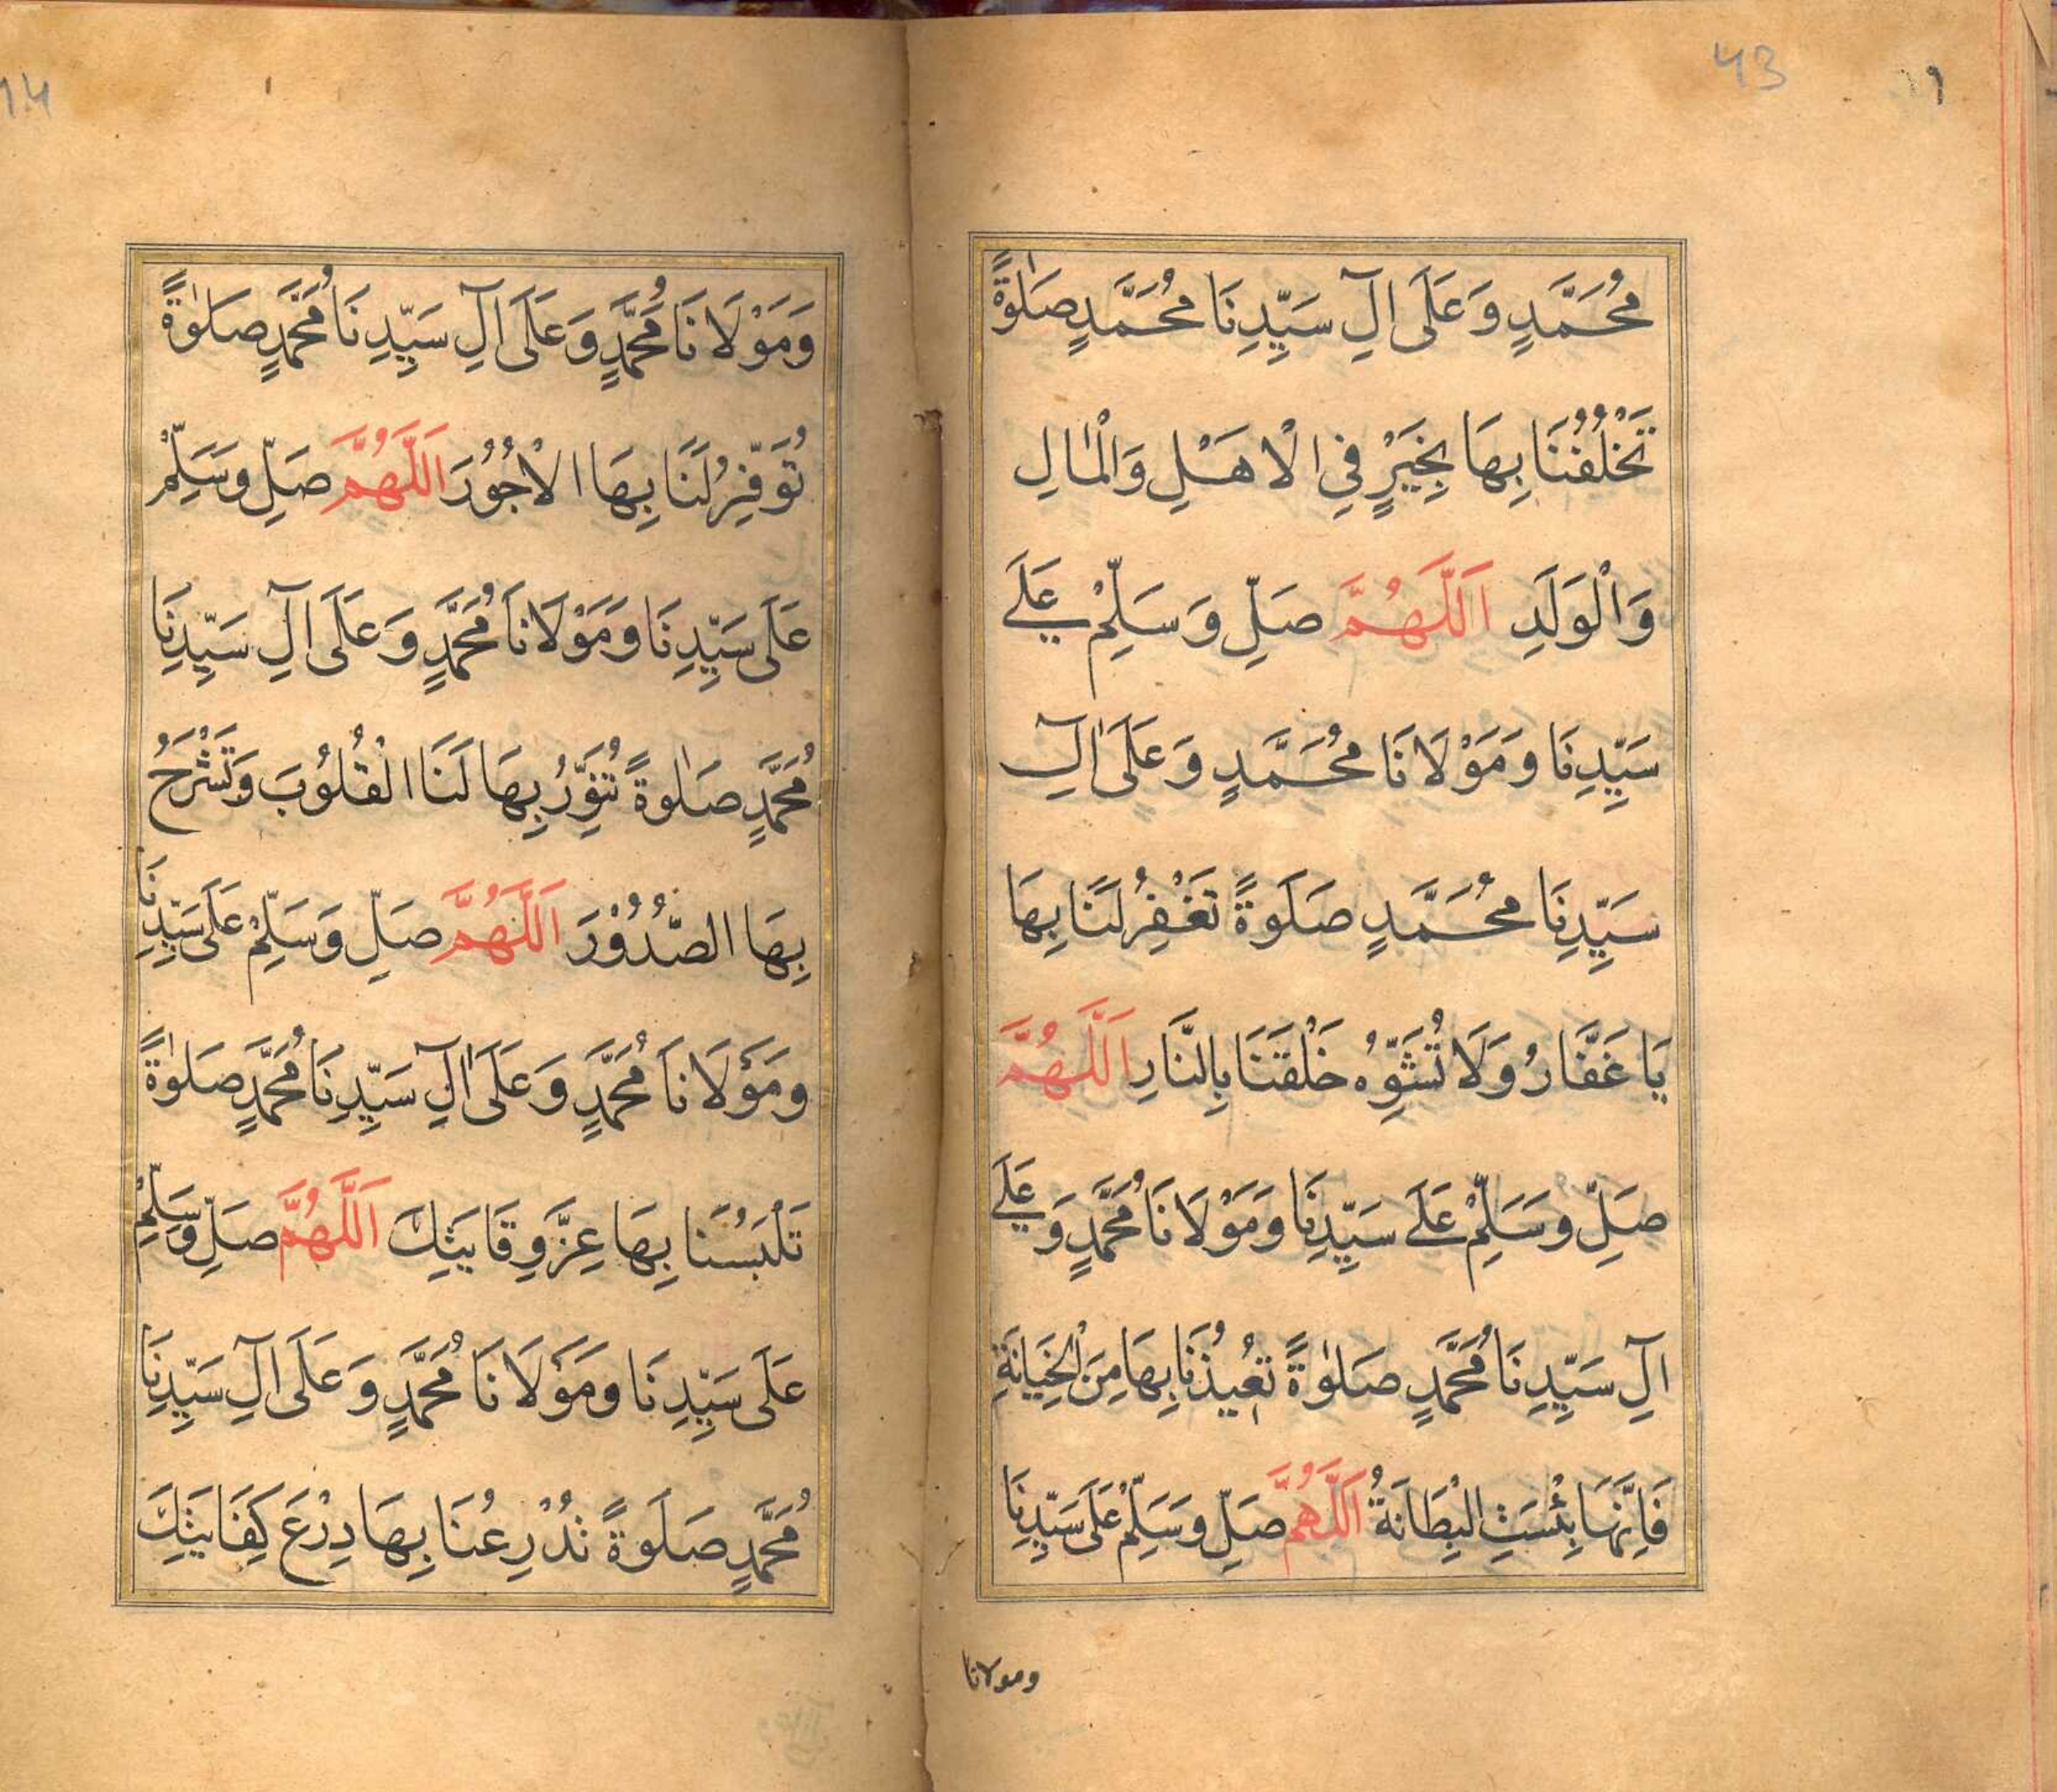 43
١
مُحَمَّدٍ وَعَلَى اٰلِ سَيِّدِنَا مُحَمَّدٍ صَلٰوةً
تَخْلُفُنَا بِهَا بِخَيْرٍ فِي الْاَهْلِ وَالْمَالِ
وَالْوَلَدِ اَللّٰهُمَّ صَلِّ وَسَلِّمْ عَلَے
سَيِّدِنَا وَمَوْلَانَا مُحَمَّدٍ وَعَلَى اٰلِ
سَيِّدِنَا مُحَمَّدٍ صَلَوةً تَغْفِرُ لَنَا بِهَا
يَا غَفَّارُ وَلَا تُشَوِّهُ خَلْقَنَا بِالنَّارِ اَللّٰهُمَّ
صَلِّ وَسَلِّمْ عَلَے سَيِّدِنَا وَمَوْلَانَا مُحَمَّدٍ وَعَلَے
اٰلِ سَيِّدِنَا مُحَمَّدٍ صَلٰوةً تُعِيذُنَا بِهَا مِنَ الْخِيَانَةِ
فَاِنَّهَا بِئْسَتِ الْبِطَانَةُ اَللّٰهُمَّ صَلِّ وَسَلِّمْ عَلَى سَيِّدِنَا
ومولانا
14
وَمَوْلَانَا مُحَمَّدٍ وَعَلَى اٰلِ سَيِّدِنَا مُحَمَّدٍ صَلٰوةً
تُوَفِّرُ لَنَا بِهَا الْاُجُوْرَ اَللّٰهُمَّ صَلِّ وَسَلِّمْ
عَلَى سَيِّدِنَا وَمَوْلَانَا مُحَمَّدٍ وَعَلَى اٰلِ سَيِّدِنَا
مُحَمَّدٍ صَلٰوةً تُنَوِّرُ بِهَا لَنَا الْقُلُوْبَ وَتَشْرَحُ
بِهَا الصُّدُوْرَ اَللّٰهُمَّ صَلِّ وَسَلِّمْ عَلَى سَيِّدِنَا
وَمَوْلَانَا مُحَمَّدٍ وَعَلَى اٰلِ سَيِّدِنَا مُحَمَّدٍ صَلٰوةً
تَلْبَسُنَا بِهَا عِزَّ وِقَايَتِكَ اَللّٰهُمَّ صَلِّ وَسَلِّمْ
عَلَى سَيِّدِنَا وَمَوْلَانَا مُحَمَّدٍ وَعَلَى اٰلِ سَيِّدِنَا
مُحَمَّدٍ صَلَوةً تُدْرِعُنَا بِهَا دِرْعَ كِفَايَتِكَ